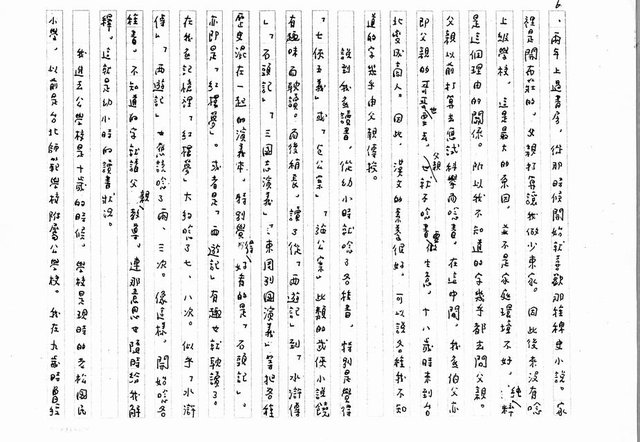 6
、兩年上過書房,從那時候開始就喜歡那種稗史小說。家
裡是開布莊的,父親打算讓我做少東家。因此後來沒有唸
上級學校,這是最大的原因,並不是家庭環境不好,純粹
是這個理由的關係。所以我不知道的字幾乎都去問父親。
父親以前打算去應試科學而唸書,在這中間,我底伯父亦
即父親的哥哥也去世,父親也就不唸書要做生意,十八歲時來到台
北變成商人。因此,漢文的素養很好,可以說各種我不知
道的字幾乎由父親傳授。
說到我底讀書,從幼小時就唸了各種書,特別是覺得
「七俠五義」或「包公案」「施公案」此類的武俠小說饒
有趣味而耽讀。而後稍長,讀了從「西遊記」到「水滸傳
」「石頭記」「三國志演義」「東周列國演義」等把各種
歷史混在一起的演義來,特別覺得好看的是「石頭記」。
亦即是「紅樓夢」。或者是「西遊記」有趣也就耽讀了。
在我底記憶裡「紅樓夢」大約唸了七、八次。似乎「水滸
傳」「西遊記」也應該唸了兩、三次。像這樣,開始唸各
種書。不知道的字就請父親教導,連那意思也隨時給我解
釋。這就是幼小時的讀書狀況。
我進去公學校是十歲的時候,學校是現時的老松國民
小學,以前是台北師範學校附屬公學校。我在九歲時曾經